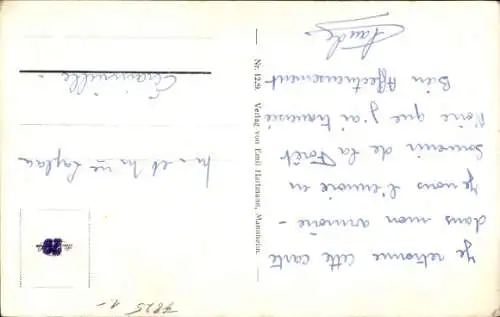 Je retrouve cette carte
dans mon armoire -
Je vous l'envoie en
Souvenir de la Forêt
Noire que j'ai traversée
Bien Affectueusement
Nr. 1239. Verlag von Emil Hartmann, Mannheim.
M. et Mme
7825 1.-